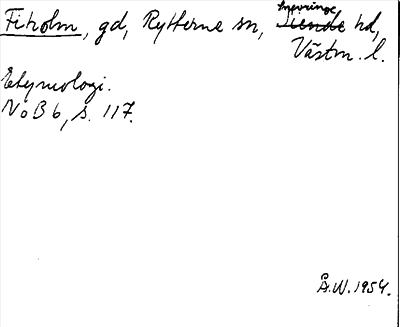 Fiholm, gd, Rytterne sn, Snevringe hd,
Västm. l.
Etymologi.
NoB 6, s. 117.
Å.W. 1954.